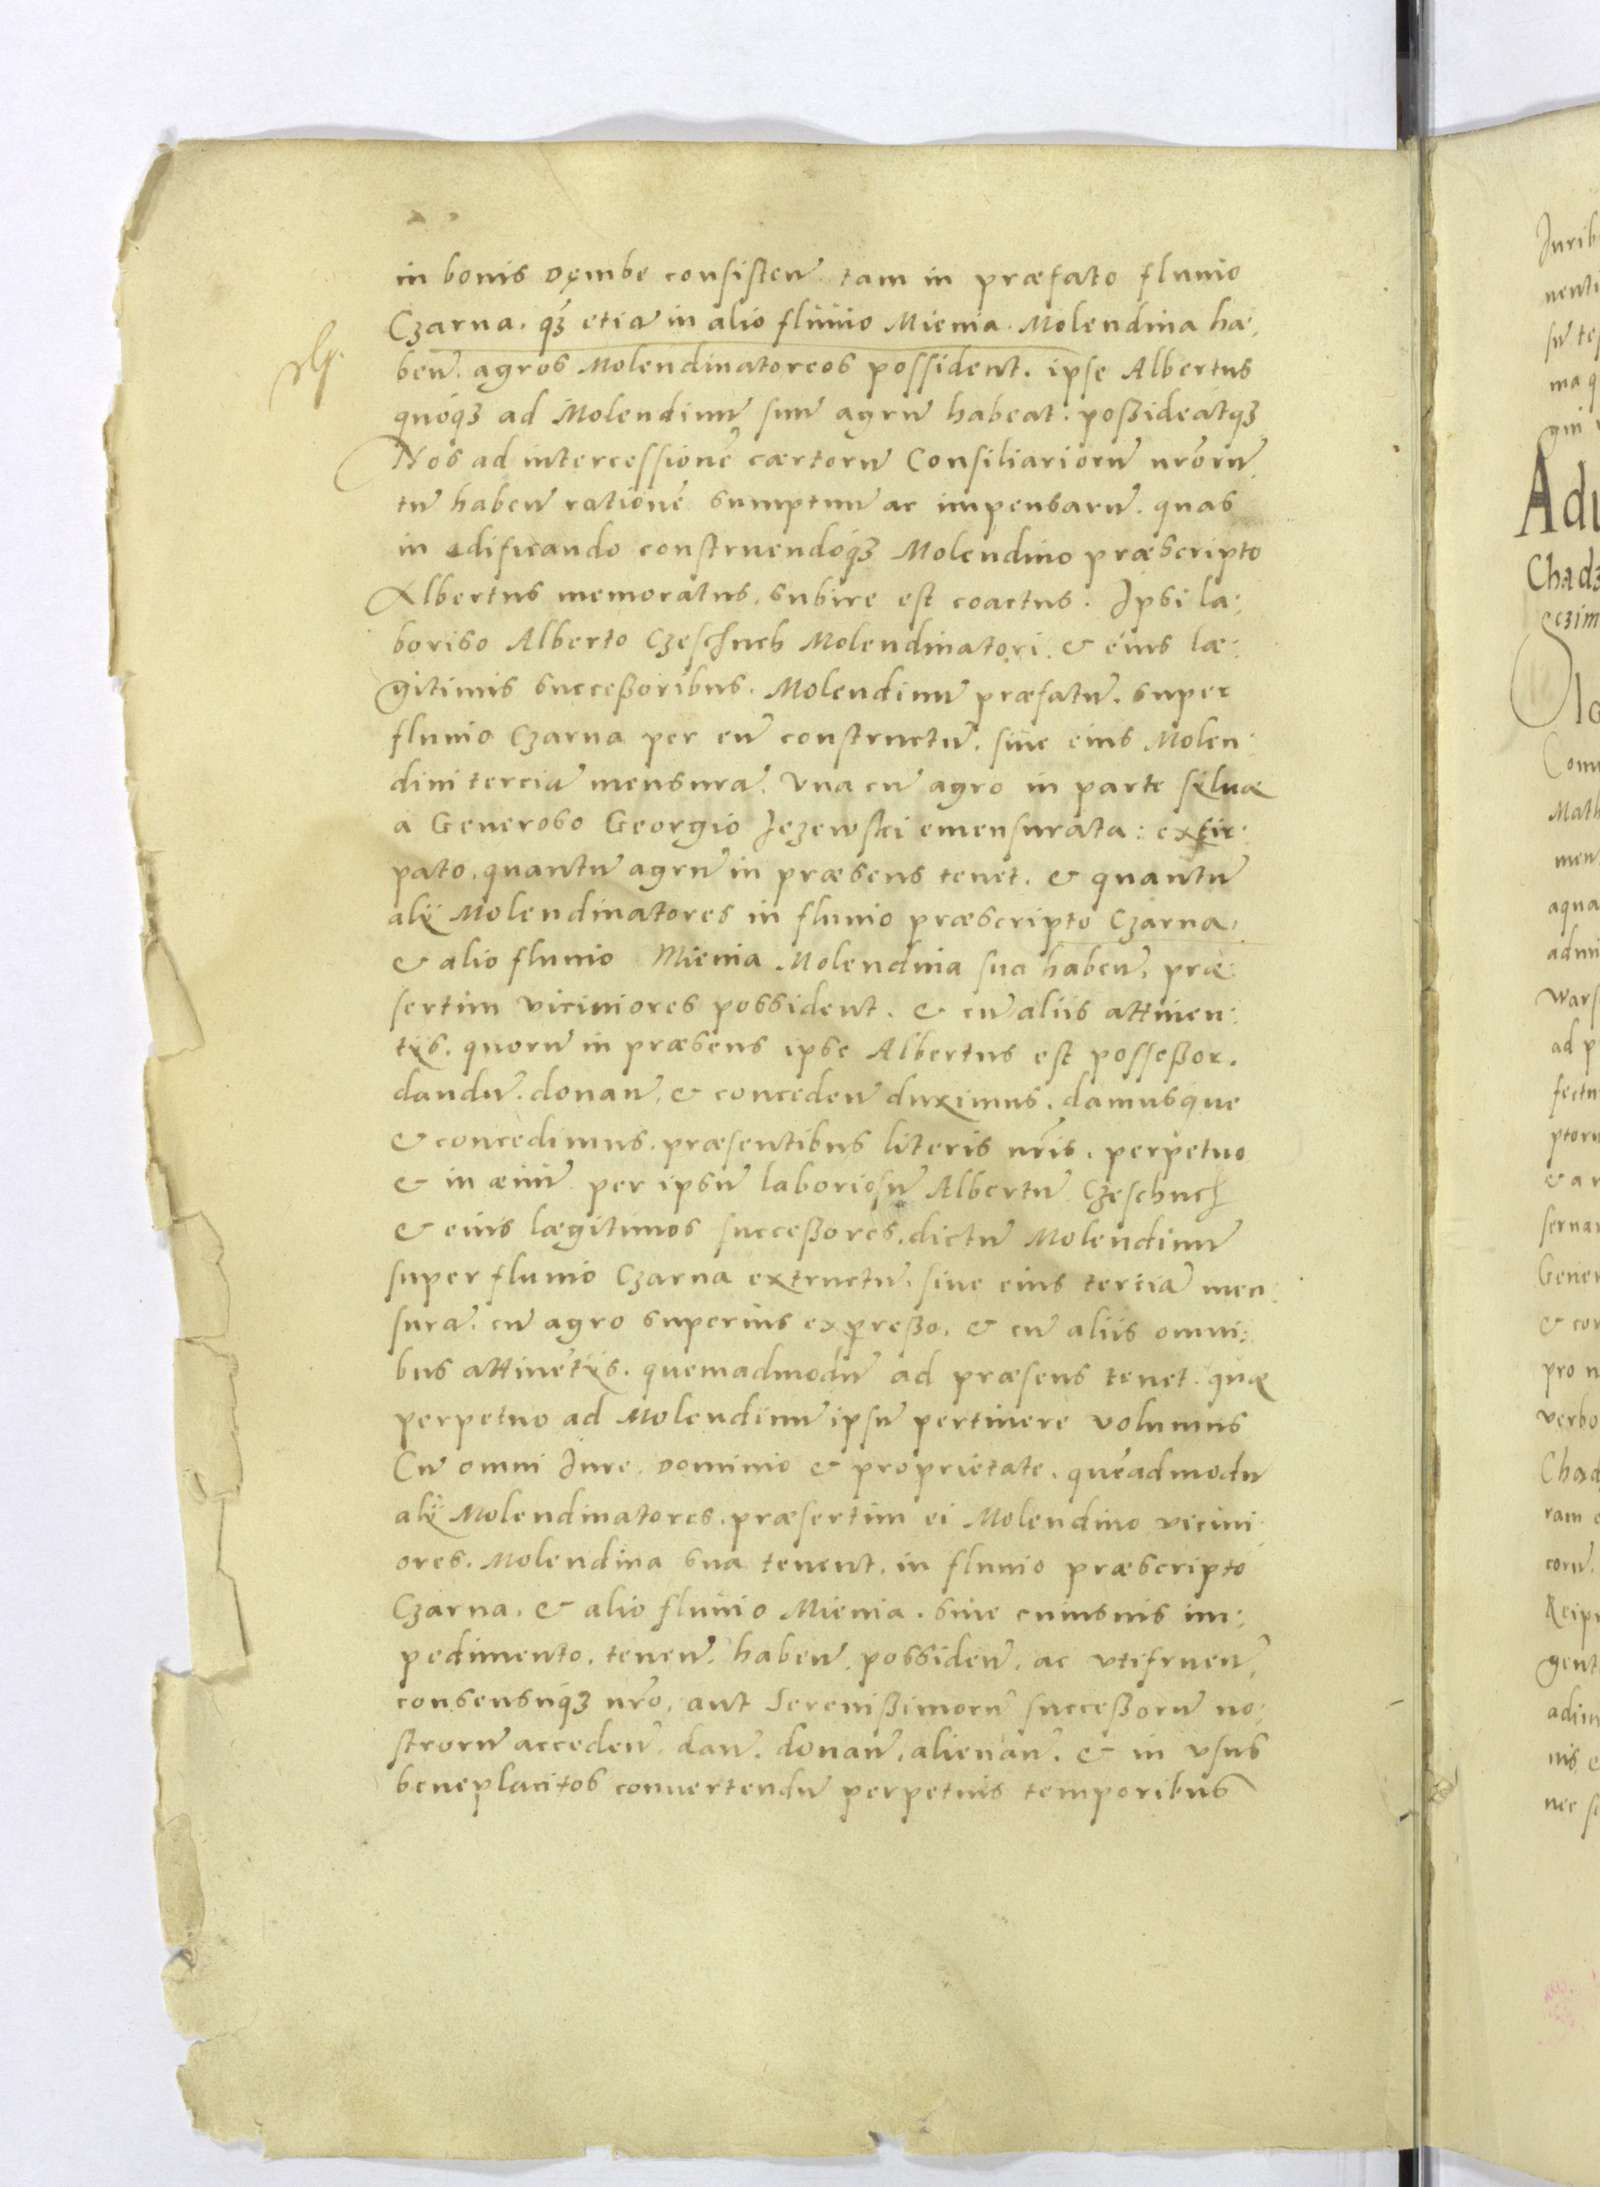 in bonis Dęmbe consisteñ. tam in præfato fluuio
Czarna. qȝ etiã in alio fluuio Mienia. Molendina ha:
beñ. agros Molendinatoreos possident. ipse Albertus
quoqȝ ad Molendinũ suũ agrũ habeat. poßideatqȝ
Nos ad intercessionẽ cærtorũ Consiliariorũ nr̃orũ
tũ habeñ rationẽ sumptuũ ac impensarũ. quas
in ædificando construendoqȝ Molendino præscripto
Albertus memoratus. subire est coactus. Ipsi la:
borioso Alberto Czeschuch Molendinatori. & eius læ:
gitimis succeßoribus. Molendinũ præfatũ. super
fluuio Czarna per eũ constructũ. siue eius Molen:
dini terciã mensurã. Vna cũ agro in parte sÿluæ
a Generoso Georgio Jezewski emensurata: extir:
pato. quantũ agrũ in præsens tenet. & quantũ
alÿ Molendinatores in fluuio præscripto Czarna.
& alio fluuio Mienia Molendina sua habeñ. præ:
sertim viciniores possident. & cũ aliis attinen:
tÿs. quorũ in præsens ipse Albertus est posseßor.
dandũ. donañ. & concedeñ duximus. damusque
& concedimus. præsentibus literis nr̃is. perpetuo
& in æuũ per ipsũ laboriosũ Albertũ Czeschuch
& eius lægitimos succeßores. dictũ Molendinũ
super fluuio Czarna extructũ. siue eius terciã men:
surã. cũ agro superius expreßo. & cũ aliis omni:
bus attinẽtÿs. quemadmodũ ad præsens tenet. quæ
perpetuo ad Molendinũ ipsũ pertinere volumus
Cũ omni Jure. Dominio & proprietate. quẽadmodũ
alÿ Molendinatores. præsertim ei Molendino vicini
ores. Molendina sua tenent. in fluuio præscripto
Czarna. & alio fluuio Mienia. sine cuiusuis im:
pedimento. teneñ. habeñ. possideñ. ac vtifrueñ.
consensuqȝ nr̃o. aut Serenißimorũ succeßorũ no:
strorũ accedeñ. dañ. donañ. alienañ. & in vsus
beneplacitos conuertendũ perpetuis temporibus